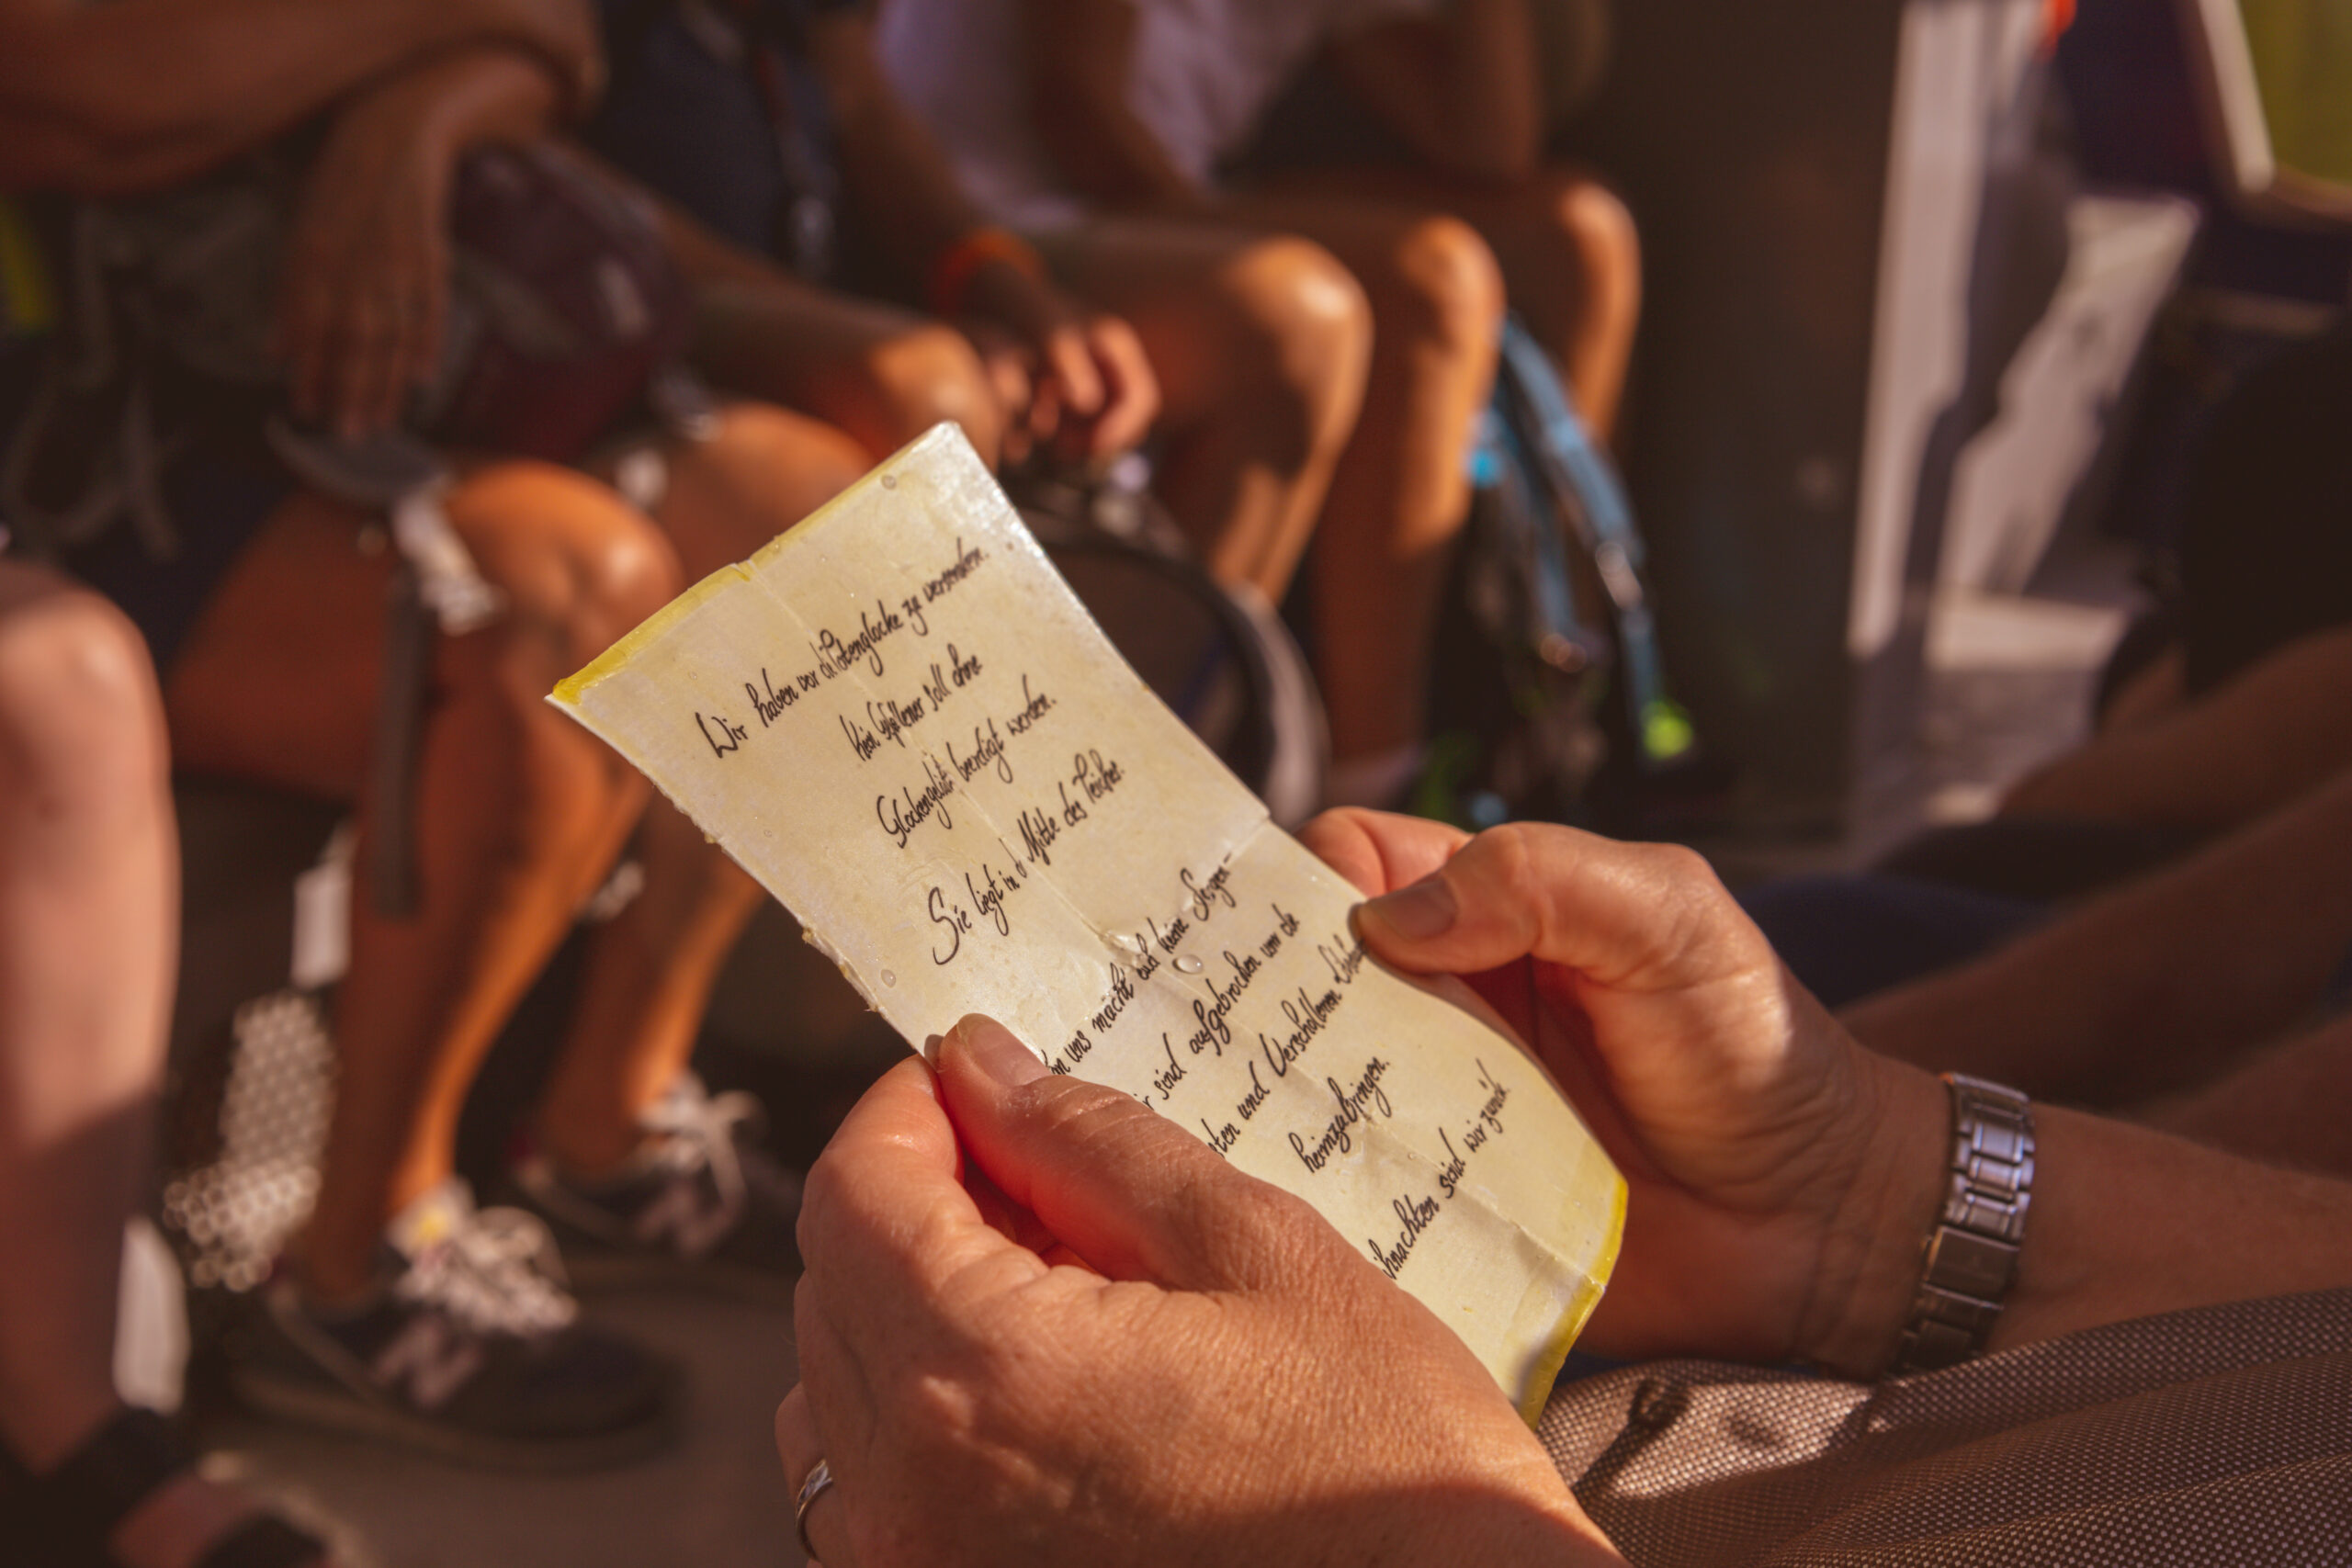 Wir haben vor die Totenglocke zu versenken.
Kein Gefallener soll ohne
Glockengeläut beerdigt werden.
Sie liegt in der Mitte des Teiches.
uns macht euch keine Sorgen-
sind aufgebrochen um die
und Verschollenen
heimzubringen.
ihnachten sind wir zurück